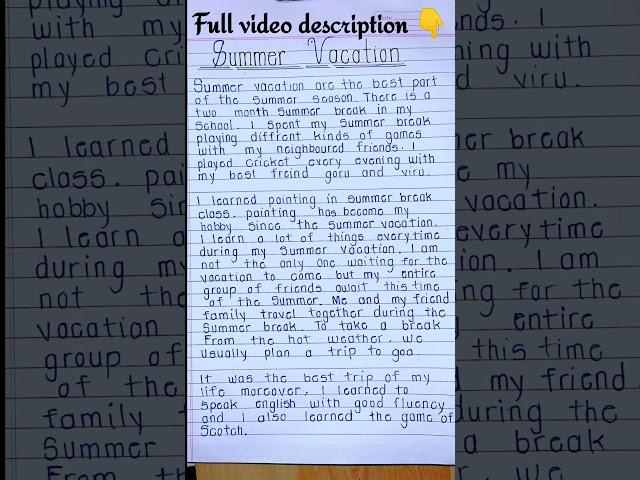 Full video description 👇
Summer Vacation
Summer vacation are the best part
of the summer season. There is a
two month summer break in my
school. I spent my summer break
playing diffrent kinds of games
with my neighboured friends. I
played cricket every evening with
my best freind goru and viru.
I learned painting in summer break
class. painting has become my
hobby since the summer vacation.
I learn a lot of things everytime
during my summer vacation. I am
not the only one waiting for the
vacation to come but my entire
group of friends await this time
of the summer. Me and my friend
family travel together during the
summer break. To take a break
From the hot weather. we
usually plan a trip to goa.
It was the best trip of my
life moreover, I learned to
speak english with good fluency
and I also learned the game of
Scotch.